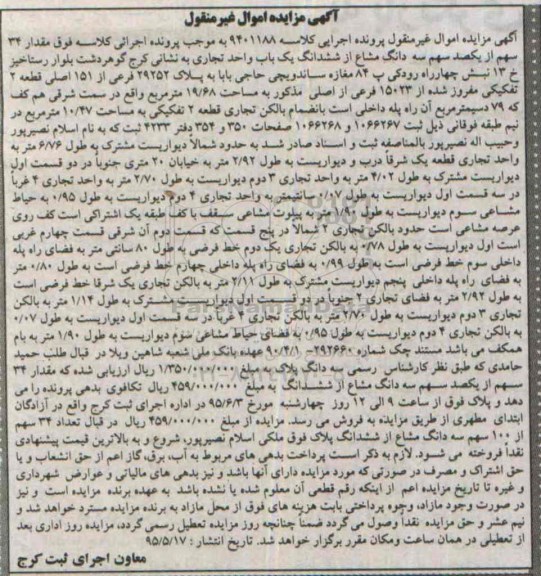 آگهی مزایده اموال غیرمنقول
آگهی مزایده اموال غیرمنقول پرونده اجرایی کلاسه ۹۴۰۱۱۸۸ به موجب پرونده اجرائی کلاسه فوق مقدار ۳۴
سهم از یکصد سهم سه دانگ مشاع از ششدانگ یک باب واحد تجاری به نشانی کرج گوهردشت بلوار رستاخیز
خ ۱۳ نبش چهارراه رودکی پ ۸۴ مغازه ساندویچی حاجی بابا به پلاک ۲۹۲۵۲ فرعی از ۱۵۱ اصلی قطعه ۲
تفکیکی مفروز شده از ۱۵۰۲۳ فرعی از اصلی مذکور به مساحت ۱۹/۶۸ مترمربع واقع در سمت شرقی هم کف
که ۷۹ دسیمترمربع آن راه پله داخلی است بانضمام بالکن تجاری قطعه ۲ تفکیکی به مساحت ۱۰/۴۷ مترمربع در
نیم طبقه فوقانی ذیل ثبت ۱۰۶۶۲۶۷ و ۱۰۶۶۲۶۸ صفحات ۳۵۰ و ۳۵۴ دفتر ۴۲۳۳ ثبت که به نام اسلام نصیرپور
وحبیب اله نصیرپور بالمناصفه ثبت و اسناد صادر شد به حدود شمالاً دیواریست مشترک به طول ۶/۷۶ متر به
واحد تجاری قطعه یک شرقاً درب و دیواریست به طول ۲/۹۲ متر به خیابان ۲۰ متری جنوباً در دو قسمت اول
دیواریست مشترک به طول ۴/۰۲ متر به واحد تجاری ۳ دوم دیواریست به طول ۲/۷۰ متر به واحد تجاری ۴ غرباً
در سه قسمت اول دیواریست به طول ۰/۰۷ سانتیمتر به واحد تجاری ۴ دوم دیواریست به طول ۰/۹۵ به حیاط
مشاعی سوم دیواریست به طول ۱/۹۰ به پیلوت مشاعی سقف با کف طبقه یک اشتراکی است کف روی
عرصه مشاعی است حدود بالکن تجاری ۲ شمالاً در پنج قسمت که قسمت دوم آن شرقی قسمت چهارم غربی
است اول دیواریست به طول ۰/۷۸ به بالکن تجاری یک دوم خط فرضی به طول ۸۰ سانتی متر به فضای راه پله
داخلی سوم خط فرضی است به طول ۰/۹۹ به فضای راه پله داخلی چهارم خط فرضی است به طول ۰/۸۰ متر
به فضای راه پله داخلی پنجم دیواریست مشترک به طول ۲/۱۱ متر به بالکن تجاری یک شرقا خط فرضی است
به طول ۲/۹۲ متر به فضای تجاری ۲ جنوباً در دو قسمت اول دیواریست مشترک به طول ۱/۱۴ متر به بالکن
تجاری ۳ دوم دیواریست به طول ۲/۷۰ متر به بالکن تجاری ۴ غرباً در سه قسمت اول دیواریست به طول ۰/۰۷
به بالکن تجاری ۴ دوم دیواریست به طول ۰/۹۵ به فضای حیاط مشاعی سوم دیواریست به طول ۱/۹۰ متر به بام
همکف می باشد مستند چک شماره ۲۹۲۶۶۰-۹۰/۴/۱ عهده بانک ملی شعبه شاهین ویلا در قبال طلب حمید
حامدی که طبق نظر کارشناس رسمی سه دانگ پلاک به مبلغ ۱/۳۵۰/۰۰۰/۰۰۰ ریال ارزیابی شده که مقدار ۳۴
سهم از یکصد سهم سه دانگ مشاع از ششدانگ به مبلغ ۴۵۹/۰۰۰/۰۰۰ ریال تکافوی بدهی پرونده را می
دهد و پلاک فوق از ساعت ۹ الی ۱۲ روز چهارشنبه مورخ ۹۵/۶/۳ در اداره اجرای ثبت کرج واقع در آزادگان
ابتدای مطهری از طریق مزایده به فروش می رسد. مزایده از مبلغ ۴۵۹/۰۰۰/۰۰۰ ریال در قبال تعداد ۳۴ سهم
از ۱۰۰ سهم سه دانگ مشاع از ششدانگ پلاک فوق ملکی اسلام نصیرپور، شروع و به بالاترین قیمت پیشنهادی
نقداً فروخته می شود. لازم به ذکر است پرداخت بدهی های مربوط به آب، برق، گاز اعم از حق انشعاب و یا
حق اشتراک و مصرف در صورتی که مورد مزایده دارای آنها باشد و نیز بدهی های مالیاتی و عوارض شهرداری
و غیره تا تاریخ مزایده اعم از اینکه رقم قطعی آن معلوم شده یا نشده باشد به عهده برنده مزایده است و نیز
در صورت وجود مازاد، وجوه پرداختی بابت هزینه های فوق از محل مازاد به برنده مزایده مسترد خواهد شد و
نیم عشر و حق مزایده نقداً وصول می گردد ضمناً چنانچه روز مزایده تعطیل رسمی گردد، مزایده روز اداری بعد
از تعطیلی در همان ساعت ومکان مقرر برگزار خواهد شد. تاریخ انتشار : ۹۵/۵/۱۷
معاون اجرای ثبت کرج